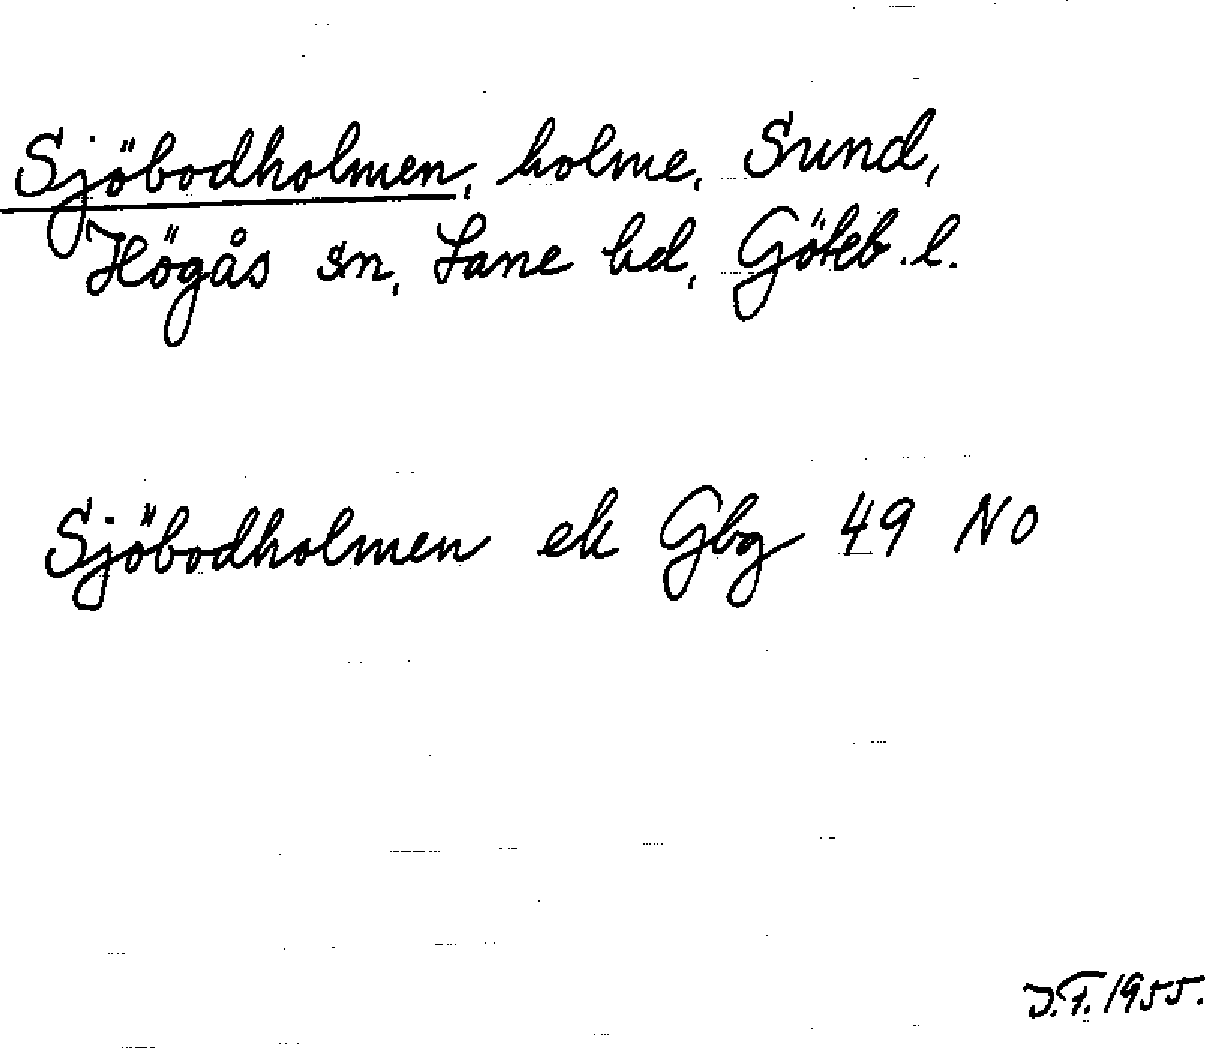 Sjöbodholmen, holme, Sund,
Högås sn, Lane hd, Göteb. l.
Sjöbodholmen ek Gbg 49 NO
J.F. 1955.